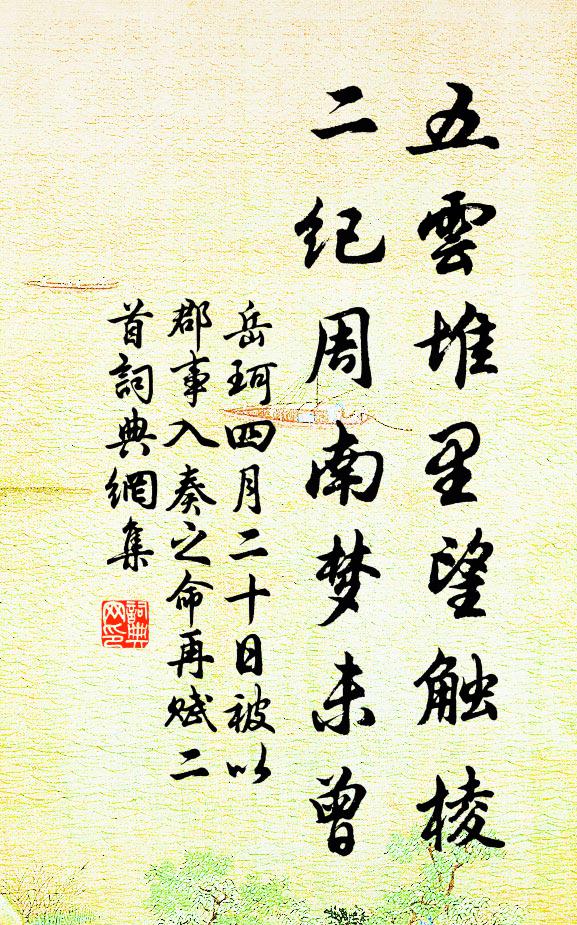 五雲堆里望触棱
二纪周南梦未曾
岳珂四月二十日被以
郡事入奏之命再赋二
首詞典網集
詞典网印